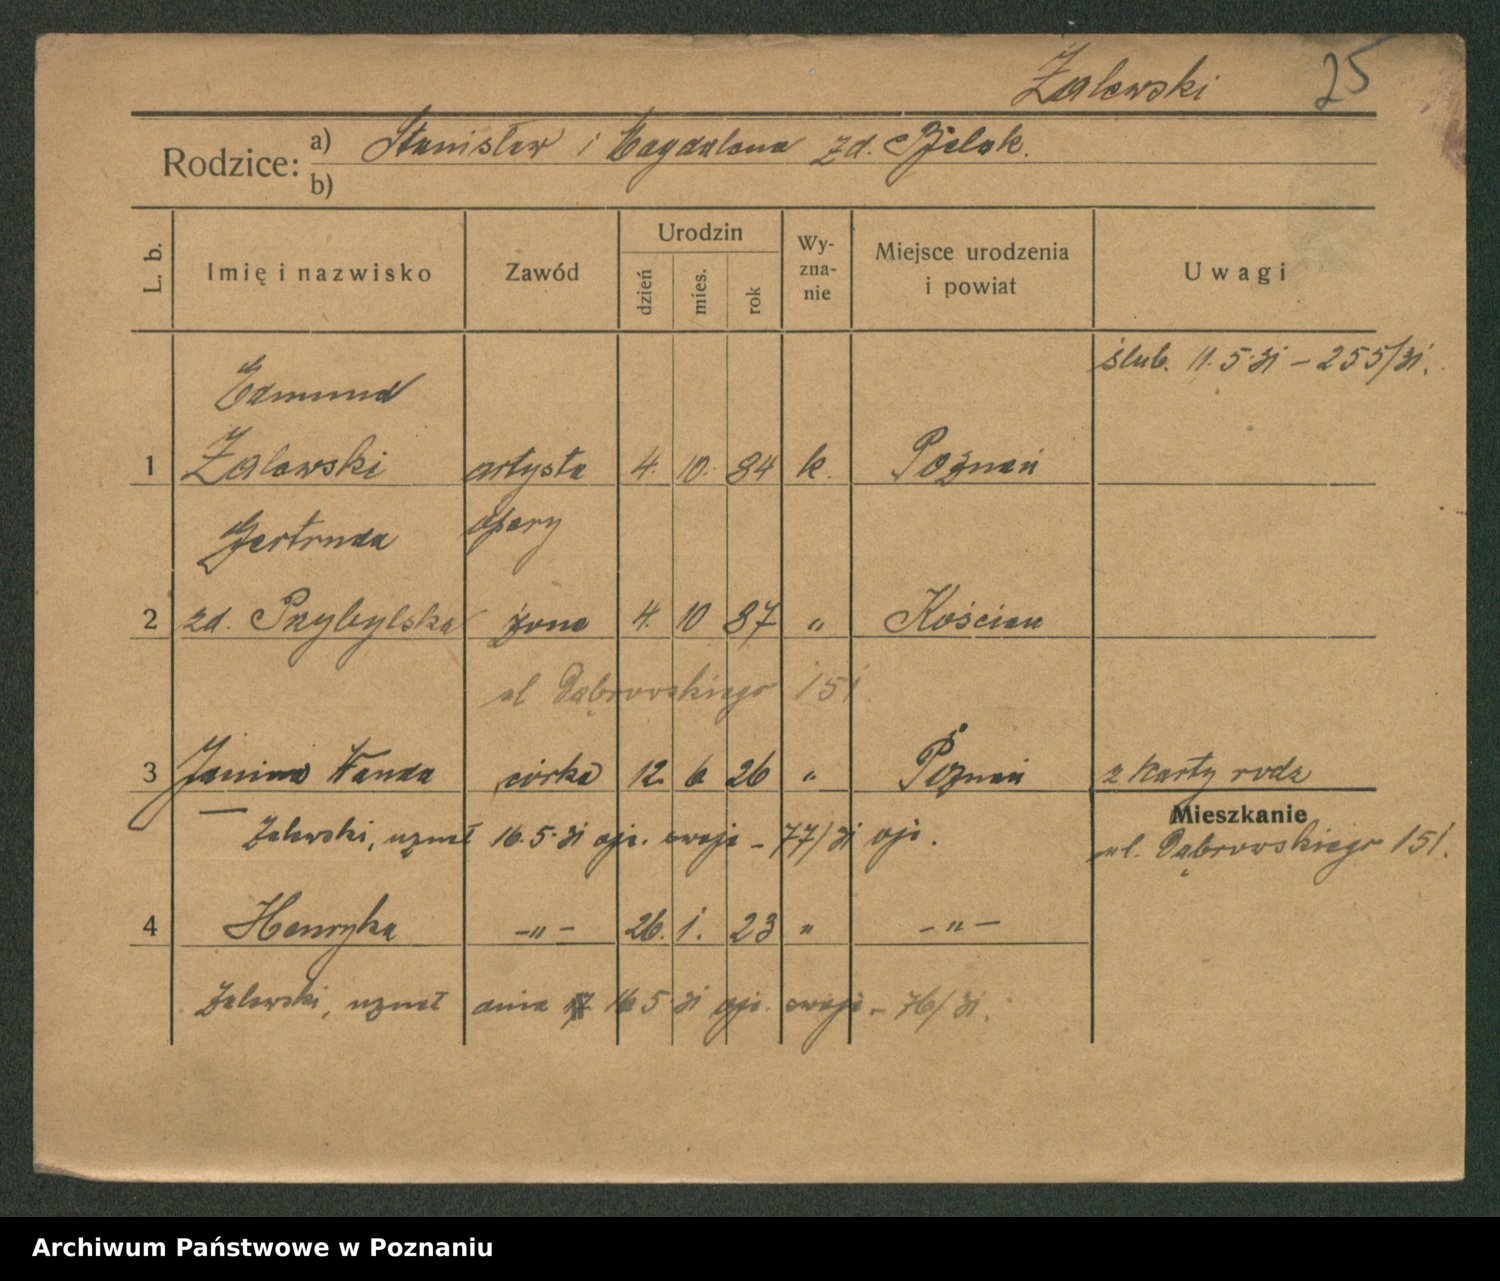 Zalewski 25
Rodzice: a) Stanisław i Magdalena zd. Bjelak.
b)
L. b. Imię i nazwisko Zawód Urodzin dzień mies. rok Wyznanie Miejsce urodzenia i powiat Uwagi
ślub. 11.5.31 – 255/31.
Edmund
1 Zalewski artysta 4. 10. 84 k. Poznań
Gertruda opery
2 zd. Przybylska żona 4. 10 87 " Kościan
ul Dąbrowskiego 151
3 Janina Wanda córka 12. 6 26 " Poznań z karty rodz
Mieszkanie
Zalewski, uznał 16.5.31 ojc. swoje – 77/31 ojc.
ul. Dąbrowskiego 151.
4 Henryka –"– 26. 1. 23 " –"–
Zalewski, uznał dnia 16 5 31 ojc. swoje – 76/31.
Archiwum Państwowe w Poznaniu